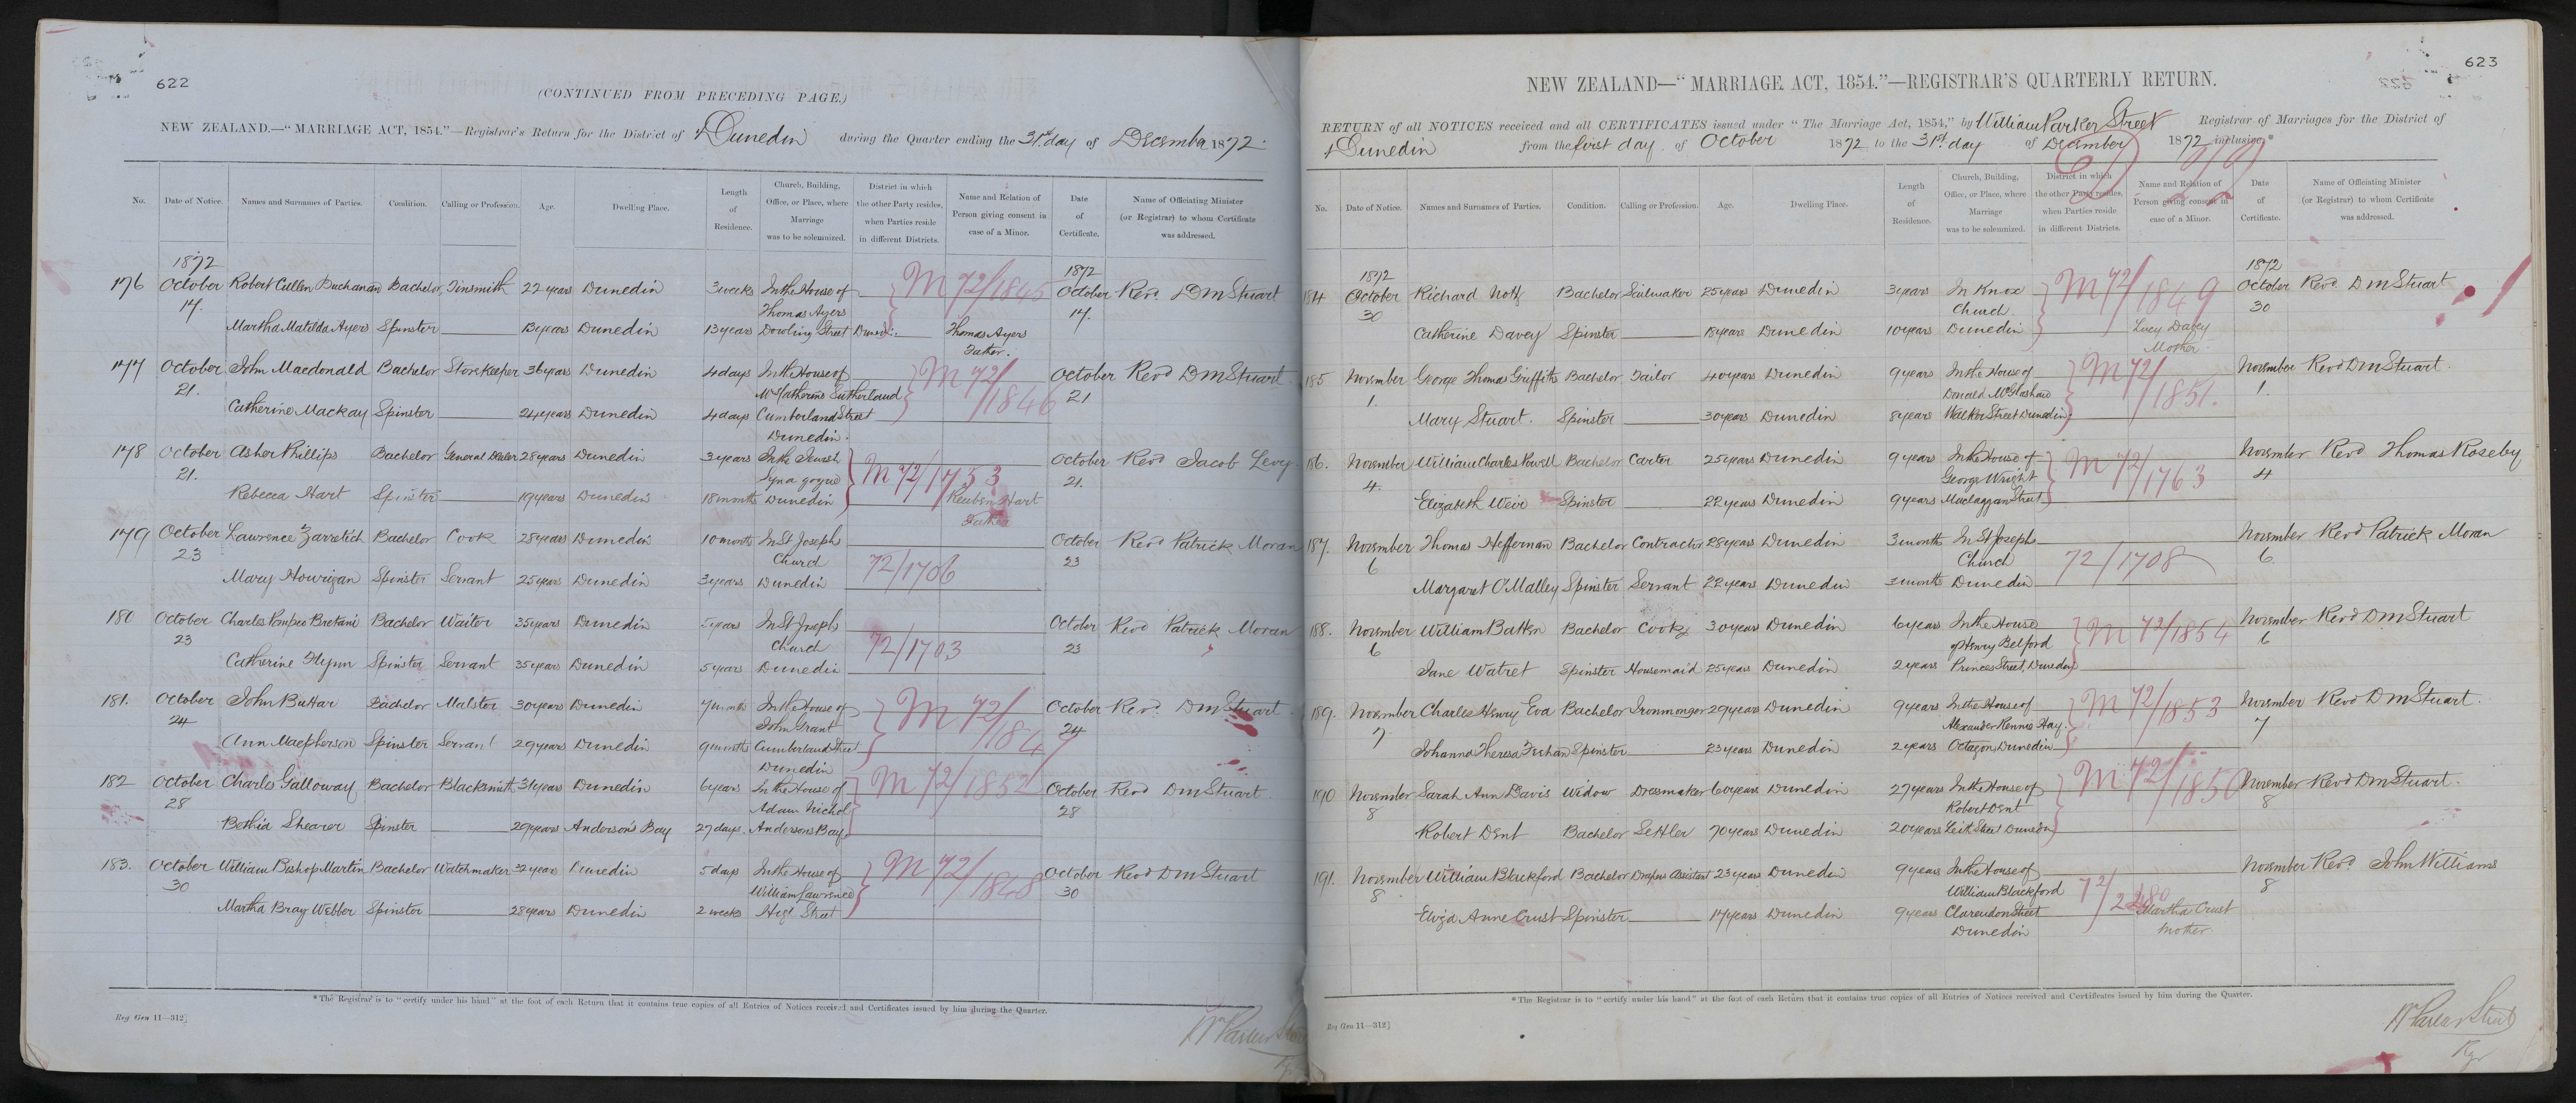 622
(CONTINUED FROM PRECEDING PAGE.)
NEW ZEALAND.—"MARRIAGE ACT, 1854."—Registrar's Return for the District of Dunedin during the Quarter ending the 31st day of December 1872.
No. Date of Notice. Names and Surnames of Parties. Condition. Calling or Profession. Age. Dwelling Place. Length of Residence. Church, Building, Office, or Place, where Marriage was to be solemnized. District in which the other Party resides, when Parties reside in different Districts. Name and Relation of Person giving consent in case of a Minor. Date of Certificate. Name of Officiating Minister (or Registrar) to whom Certificate was addressed.
1872 1872
176 October Robert Cullen Buchanan Bachelor Tinsmith 22 years Dunedin 3 weeks In the House of M 72/1845 October Revd. D M Stuart
17. Thomas Ayers 17.
Martha Matilda Ayers Spinster Dunedin 13 years Dowling Street Dunedin Thomas Ayers
Father.
177 October John Macdonald Bachelor Storekeeper 36 years Dunedin 4 days In the House of M 72/1846 October Revd D M Stuart
21. Sutherland 21
Catherine Mackay Spinster 24 years Dunedin 4 days Cumberland Street
Dunedin.
178 October Asher Phillips Bachelor General Dealer 28 years Dunedin 3 years In the Jewish M 72/1753 October Revd Jacob Levy
21. Synagogue 21.
Rebecca Hart Spinster 19 years Dunedin 18 months Dunedin Reuben Hart
Father
179 October Lawrence Zarretich Bachelor Cook 28 years Dunedin 10 months In St Josephs October Revd Patrick Moran
23 Church 72/1706 23
Mary Hourigan Spinster Servant 25 years Dunedin 3 years Dunedin
180 October Charles Pompeo Bretani Bachelor Waiter 35 years Dunedin 5 years In St Josephs October Revd Patrick Moran
23 Church 72/1703 23
Catherine Flynn Spinster Servant 35 years Dunedin 5 years Dunedin
181. October John Buttar Bachelor Malster 30 years Dunedin 7 months In the House of M 72/1847 October Revd. D M Stuart
24 John Grant 24
Ann Macpherson Spinster Servant 29 years Dunedin 9 months Cumberland Street
Dunedin
182 October Charles Galloway Bachelor Blacksmith 31 years Dunedin 6 years In the House of M 72/1852 October Revd D M Stuart
28 Adam Nichol 28
Bethia Shearer Spinster 29 years Anderson's Bay 27 days. Andersons Bay
183. October William Bishop Martin Bachelor Watchmaker 32 years Dunedin 5 days In the House of M 72/1848 October Revd D M Stuart
30 William Lawrence 30
Martha Bray Webber Spinster 28 years Dunedin 2 weeks High Street
* The Registrar is to "certify under his hand" at the foot of each Return that it contains true copies of all Entries of Notices received and Certificates issued by him during the Quarter.
Reg Gen 11—312]
Wm Parker Street
623
NEW ZEALAND—"MARRIAGE ACT, 1854."—REGISTRAR'S QUARTERLY RETURN.
RETURN of all NOTICES received and all CERTIFICATES issued under "The Marriage Act, 1854," by William Parker Street Registrar of Marriages for the District of
Dunedin from the first day of October 1872 to the 31st day of December 1872 inclusive.*
No. Date of Notice. Names and Surnames of Parties. Condition. Calling or Profession. Age. Dwelling Place. Length of Residence. Church, Building, Office, or Place, where Marriage was to be solemnized. District in which the other Party resides, when Parties reside in different Districts. Name and Relation of Person giving consent in case of a Minor. Date of Certificate. Name of Officiating Minister (or Registrar) to whom Certificate was addressed.
1872 1872
184 October Richard Bachelor Sailmaker 25 years Dunedin 3 years In Knox M 72/1849 October Revd D M Stuart
30 Church 30
Catherine Davey Spinster 18 years Dunedin 10 years Dunedin Lucy Davey
Mother
185 November George Thomas Griffiths Bachelor Tailor 40 years Dunedin 9 years In the House of M 72/1851. November Revd D M Stuart.
1. Donald McGlashan 1.
Mary Stuart. Spinster 30 years Dunedin 8 years Walker Street Dunedin
186. November William Charles Powell Bachelor Carter 25 years Dunedin 9 years In the House of M 72/1763 November Revd Thomas Roseby
4. George Wright 4
Elizabeth Weir Spinster 22 years Dunedin 9 years Maclaggan Street
187. November Thomas Heffernan Bachelor Contractor 28 years Dunedin 3 months In St Josephs November Revd Patrick Moran
6 Church 72/1708 6
Margaret O'Malley Spinster Servant 22 years Dunedin 3 months Dunedin
188. November William Batten Bachelor Cook 30 years Dunedin 6 years In the House M 72/1854 November Revd D M Stuart
6 of Henry Belford 6
Jane Watret Spinster Housemaid 25 years Dunedin 2 years Princes Street, Dunedin
189. November Charles Henry Eva Bachelor Ironmonger 29 years Dunedin 9 years In the House of M 72/1853 November Revd D M Stuart.
7 Alexander Rennie Hay 7
Johanna Theresa Spinster 23 years Dunedin 2 years Octagon, Dunedin
190 November Sarah Ann Davis Widow Dressmaker 60 years Dunedin 27 years In the House of M 72/1850 November Revd D M Stuart.
8 Robert Dent 8
Robert Dent Bachelor Settler 70 years Dunedin 20 years Leith Street Dunedin
191. November William Blackford Bachelor Drapers Assistant 23 years Dunedin 9 years In the House of November Revd. John Williams
8 William Blackford 72/2480 8
Eliza Anne Crust Spinster 17 years Dunedin 9 years Clarendon Street Martha Crust
Dunedin Mother.
* The Registrar is to "certify under his hand" at the foot of each Return that it contains true copies of all Entries of Notices received and Certificates issued by him during the Quarter.
Reg Gen 11—312]
Wm Parker Street
Rgr